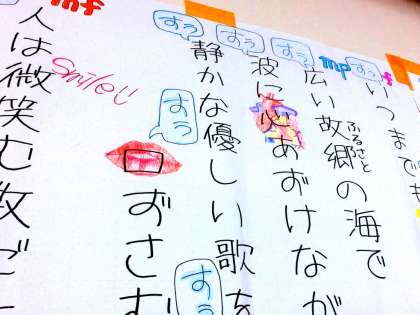 f
すぅ
いつまでも
mp
すぅ
ふるさと
広い故郷の海で
すぅ
波に心あずけなが
すぅ
静かな優しい歌を
すぅ
口ずさむ
すぅ
mf
Smile!
人は微笑む